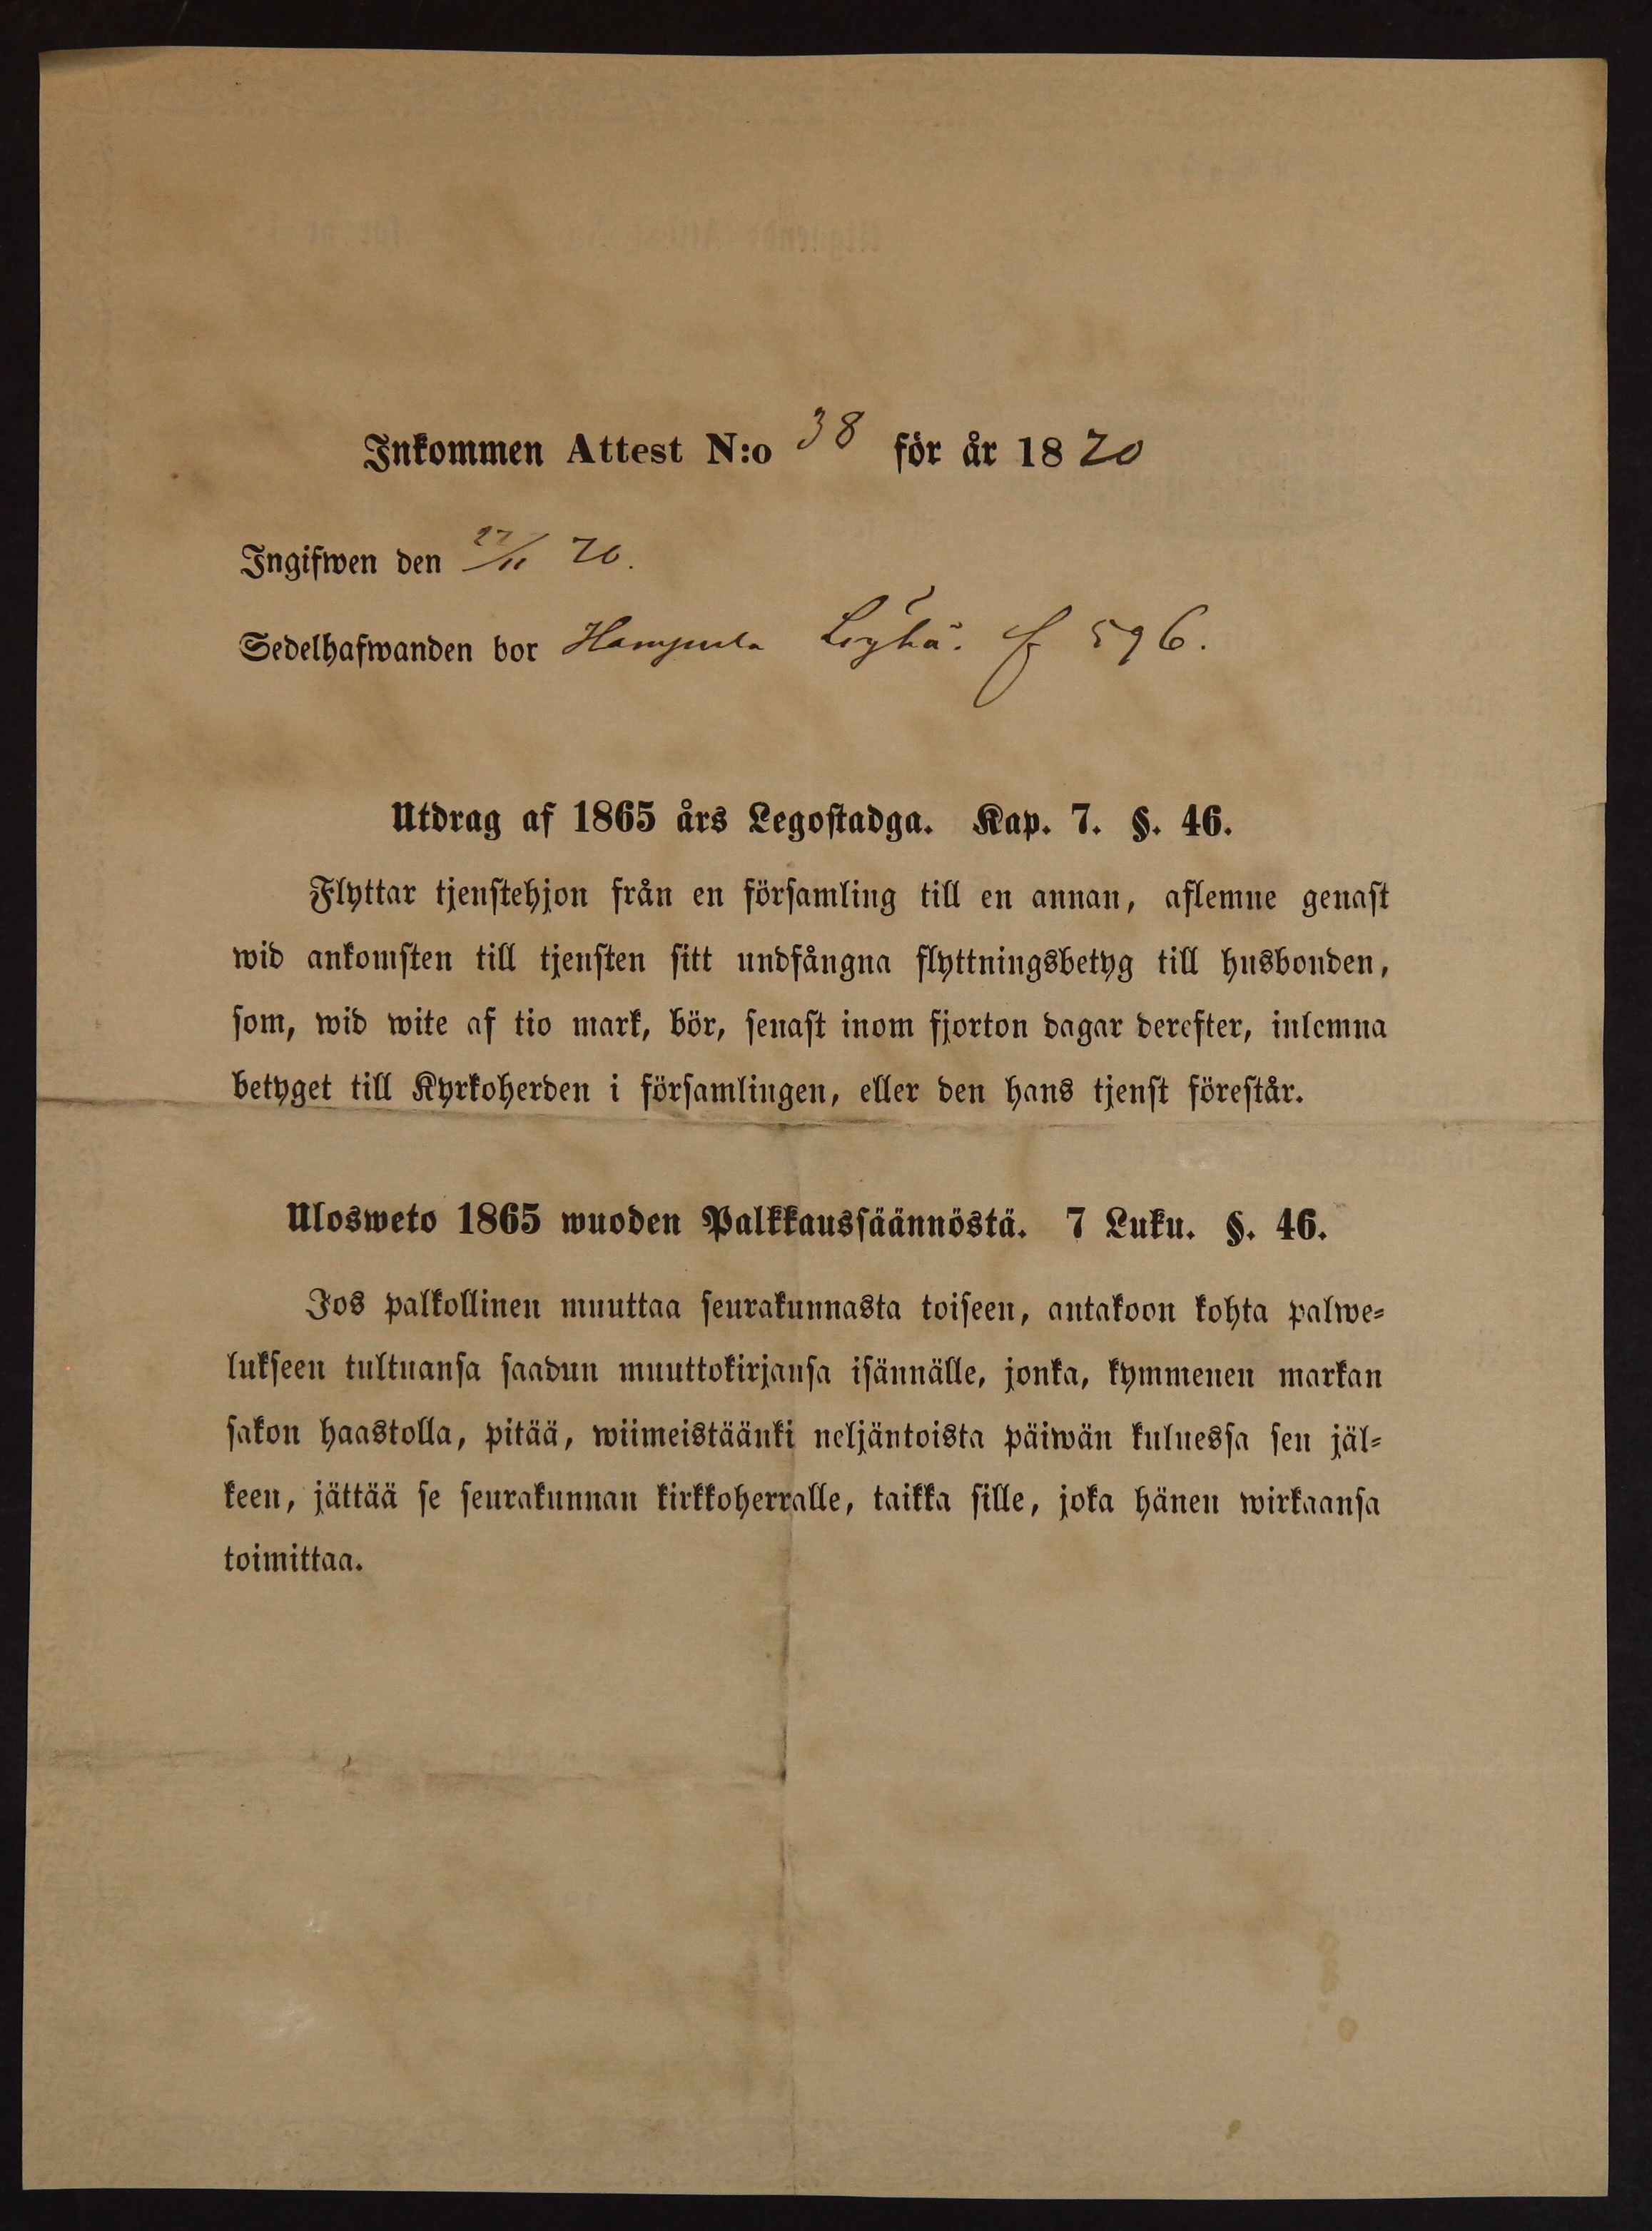 Inkommen Attest N:o 38 för år 1870
Ingifwen den 27/11 70.
Sedelhafwanden bor Hampula Löyhä. f 596.
Utdrag af 1865 års Legostadga. Kap. 7. §. 46.
Flyttar tjenstehjon från en församling till en annan, aflemne genast
wid ankomsten till tjensten sitt undfångna flyttningsbetyg till husbonden,
som, wid wite af tio mark, bör, senast inom fjorton dagar derefter, inlemna
betyget till Kyrkoherden i församlingen, eller den hans tjenst förestår.
Ulosweto 1865 wuoden Palkkaussäännöstä. 7 Luku. §. 46.
Jos palkollinen muuttaa seurakunnasta toiseen, antakoon kohta palwe=
lukseen tultuansa saadun muuttokirjansa isännälle, jonka, kymmenen markan
sakon haastolla, pitää, wiimeistäänki neljäntoista päiwän kuluessa sen jäl=
keen, jättää se seurakunnan kirkkoherralle, taikka sille, joka hänen wirkaansa
toimittaa.